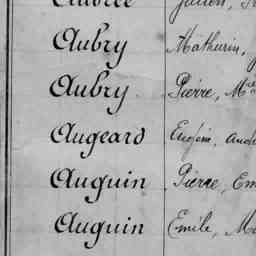 Aubrée Julien,
Aubry Mathurin,
Aubry Pierre, M
Augeard Eugène, And
Auguin Pierre, Em
Auguin Emile, M